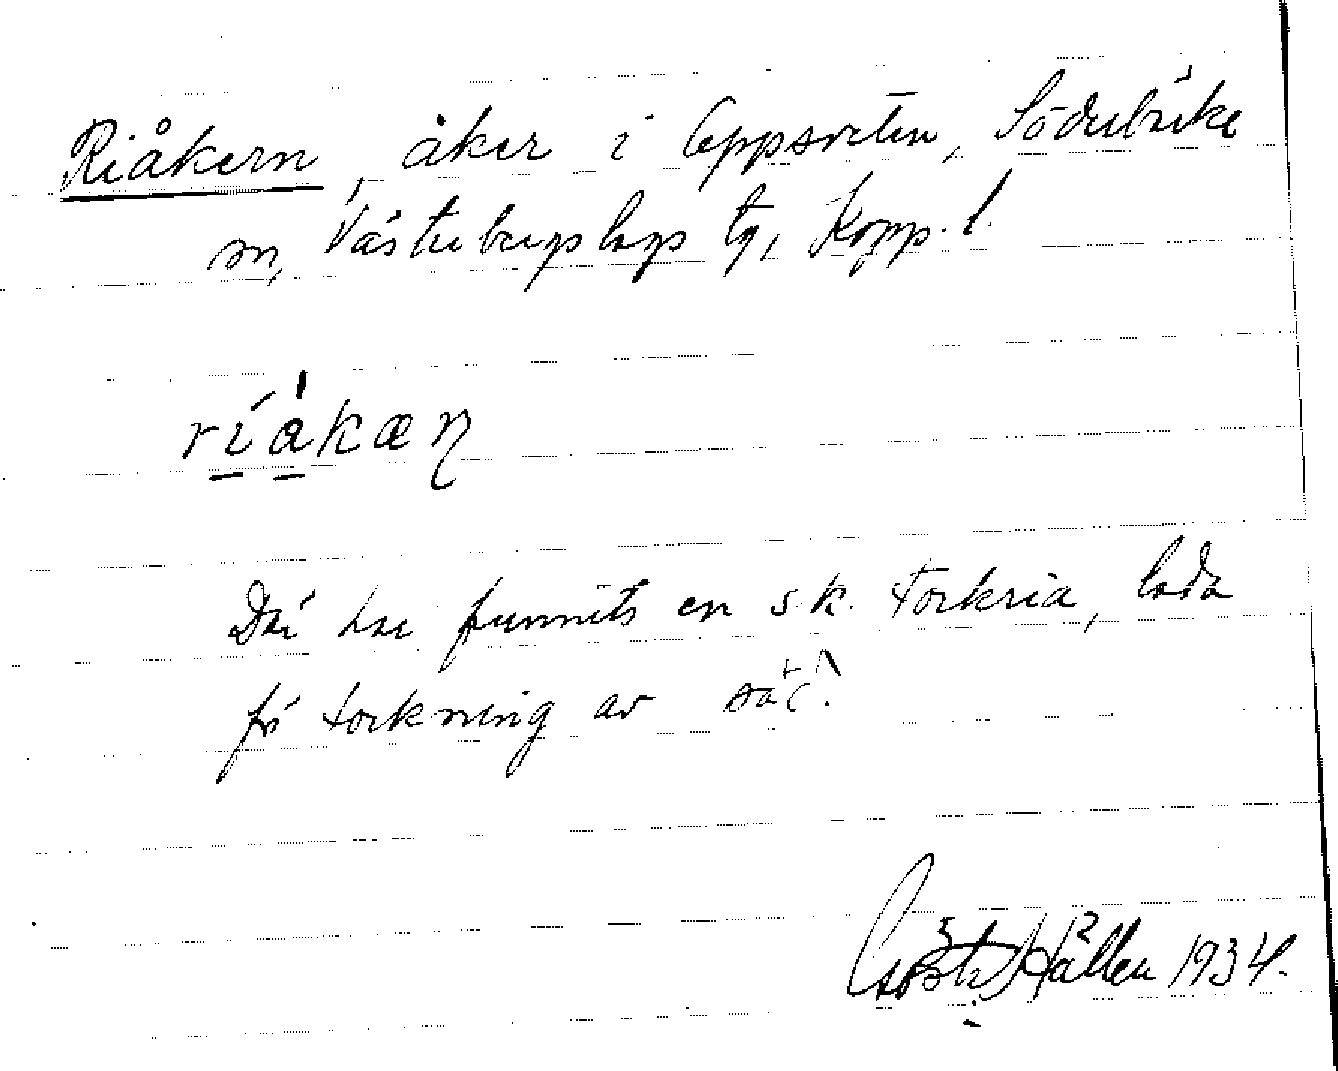 Riåkern, åker i Eppsveten, Söderbärke
sn, Västerbergslags tg, Kopp. l.
ríåkæn
Där har funnits en s.k. torkria, lada
för torkning av säd.
Gösta Hållen 1934.